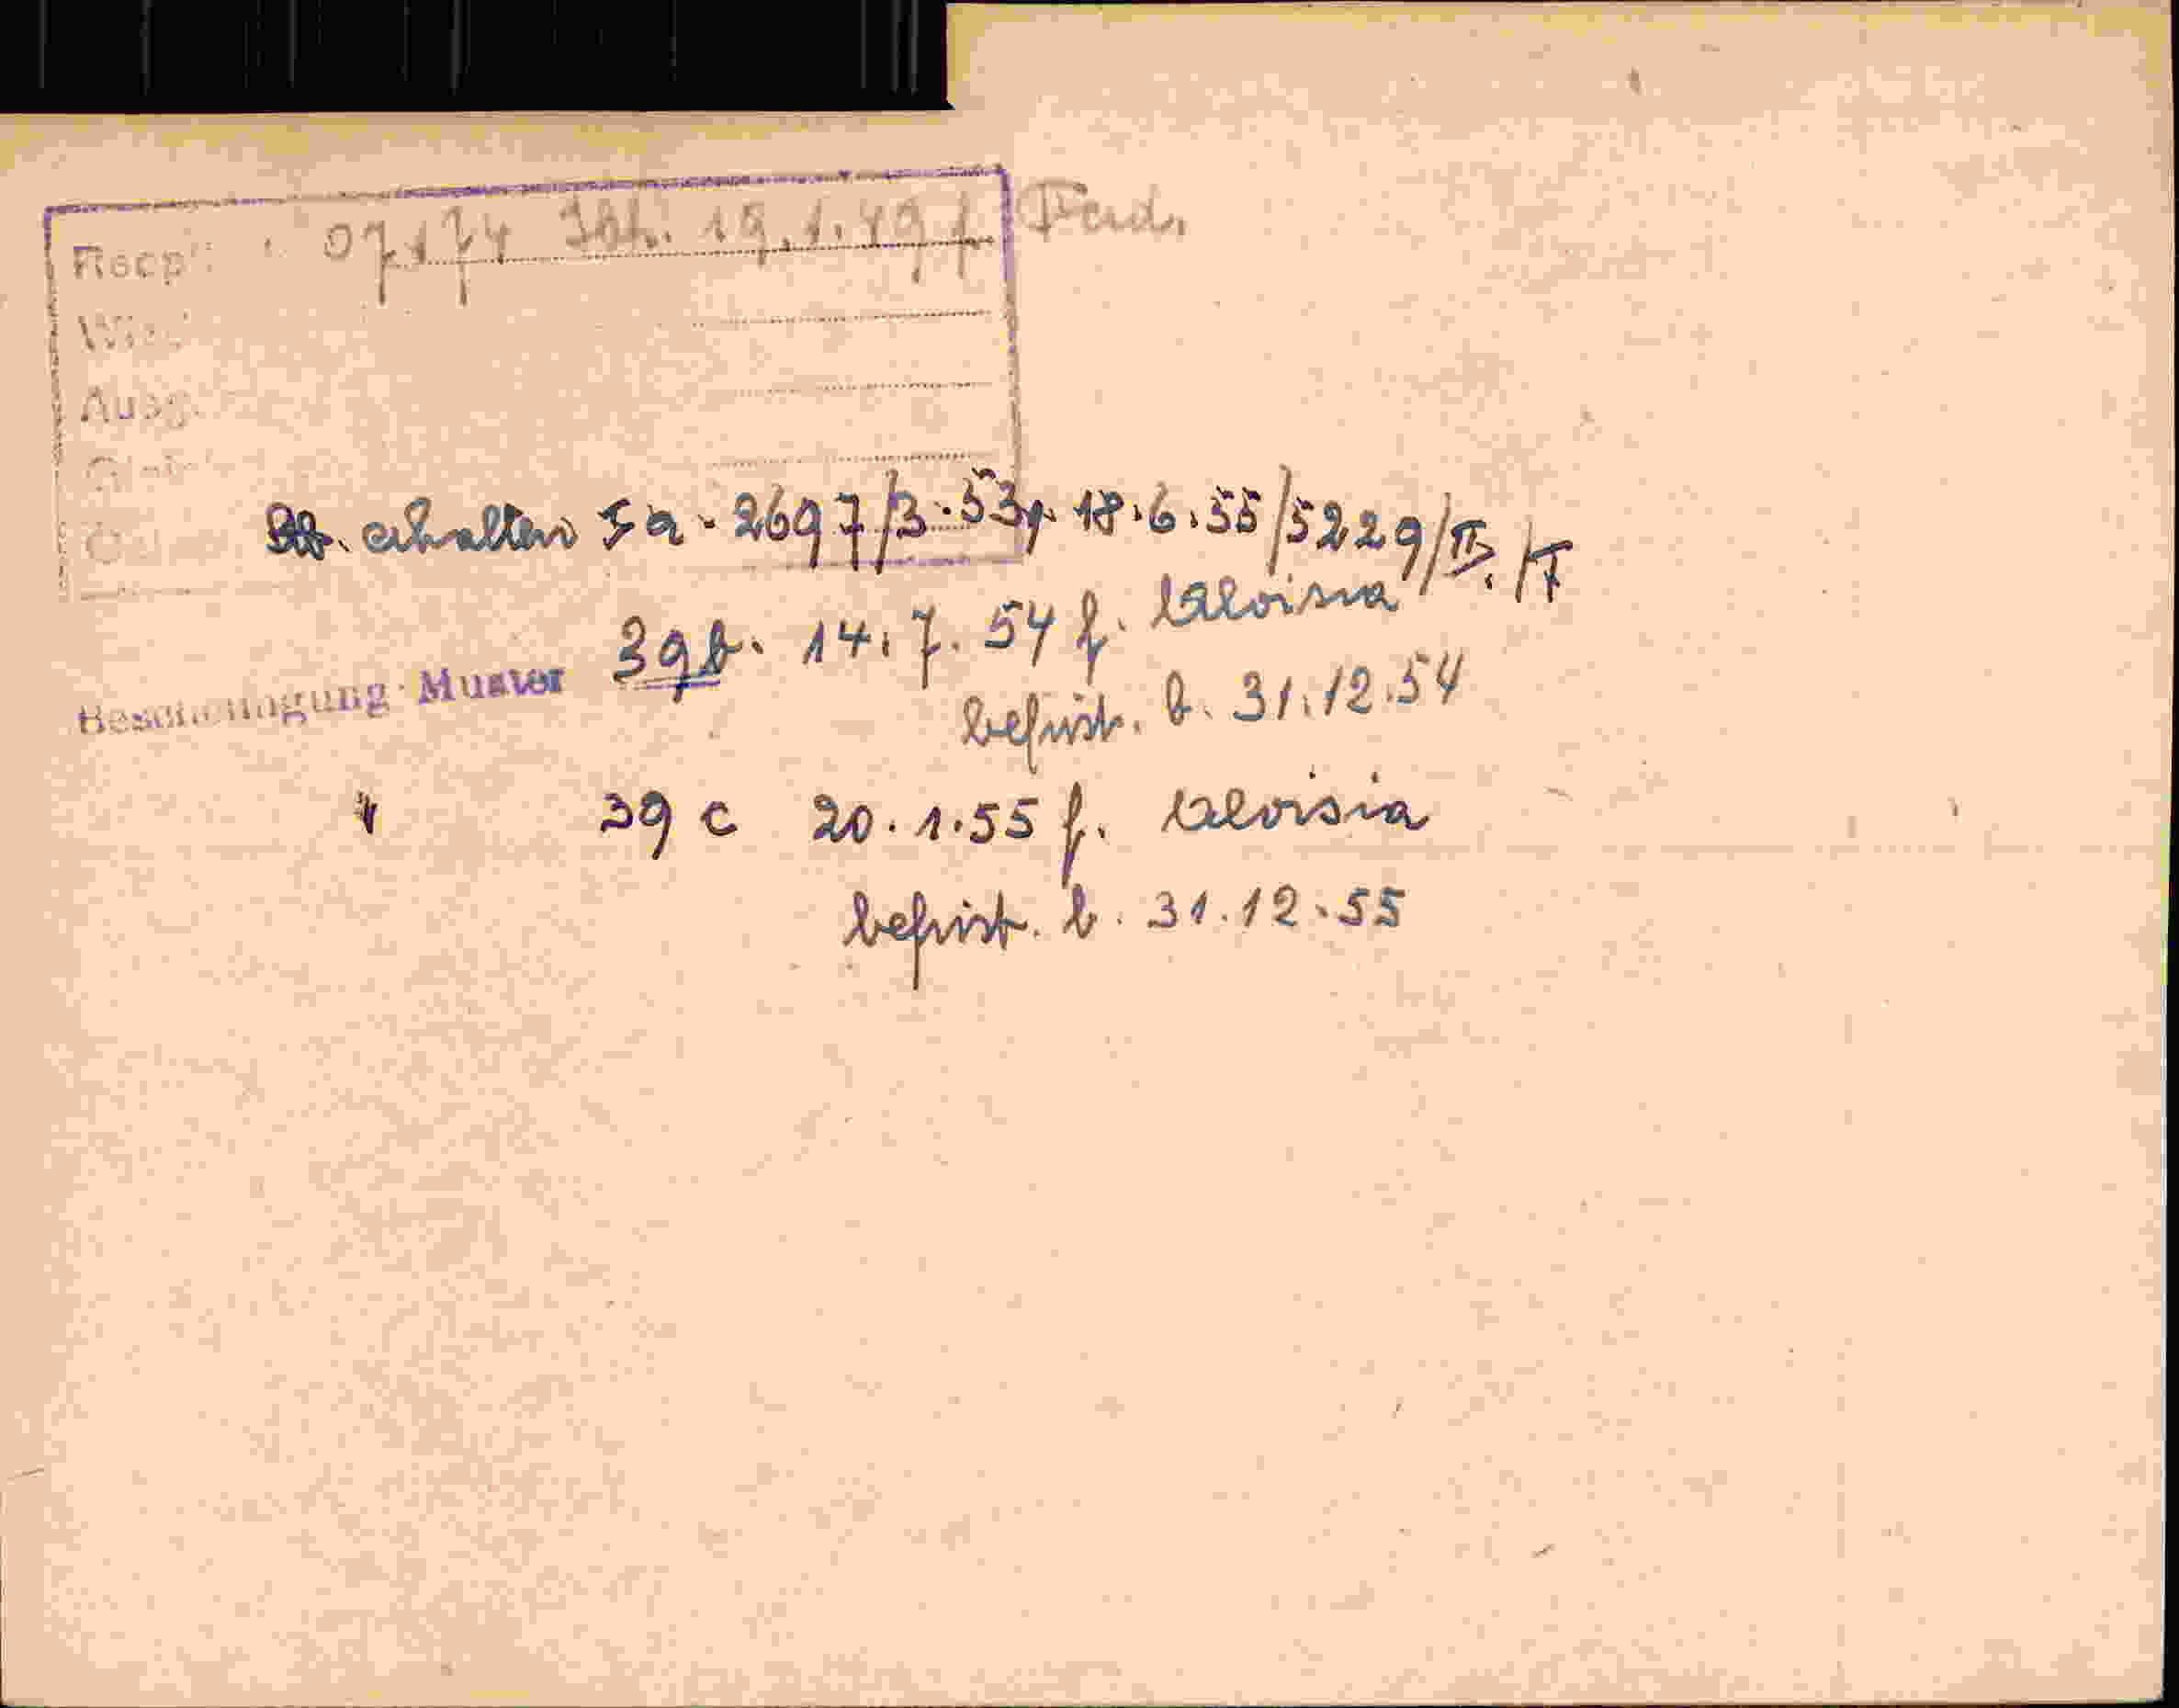 07174 19.1.49 f. Ferd.
Ausg.
erhalten 5a. 2697/3.53 18.6.55/5229/II./T
Bescheinigung Muster 39b. 14.7.54 f. Aloisia
befrist. b. 31.12.54
" 39 c 20.1.55 f. Aloisia
befrist. b. 31.12.55